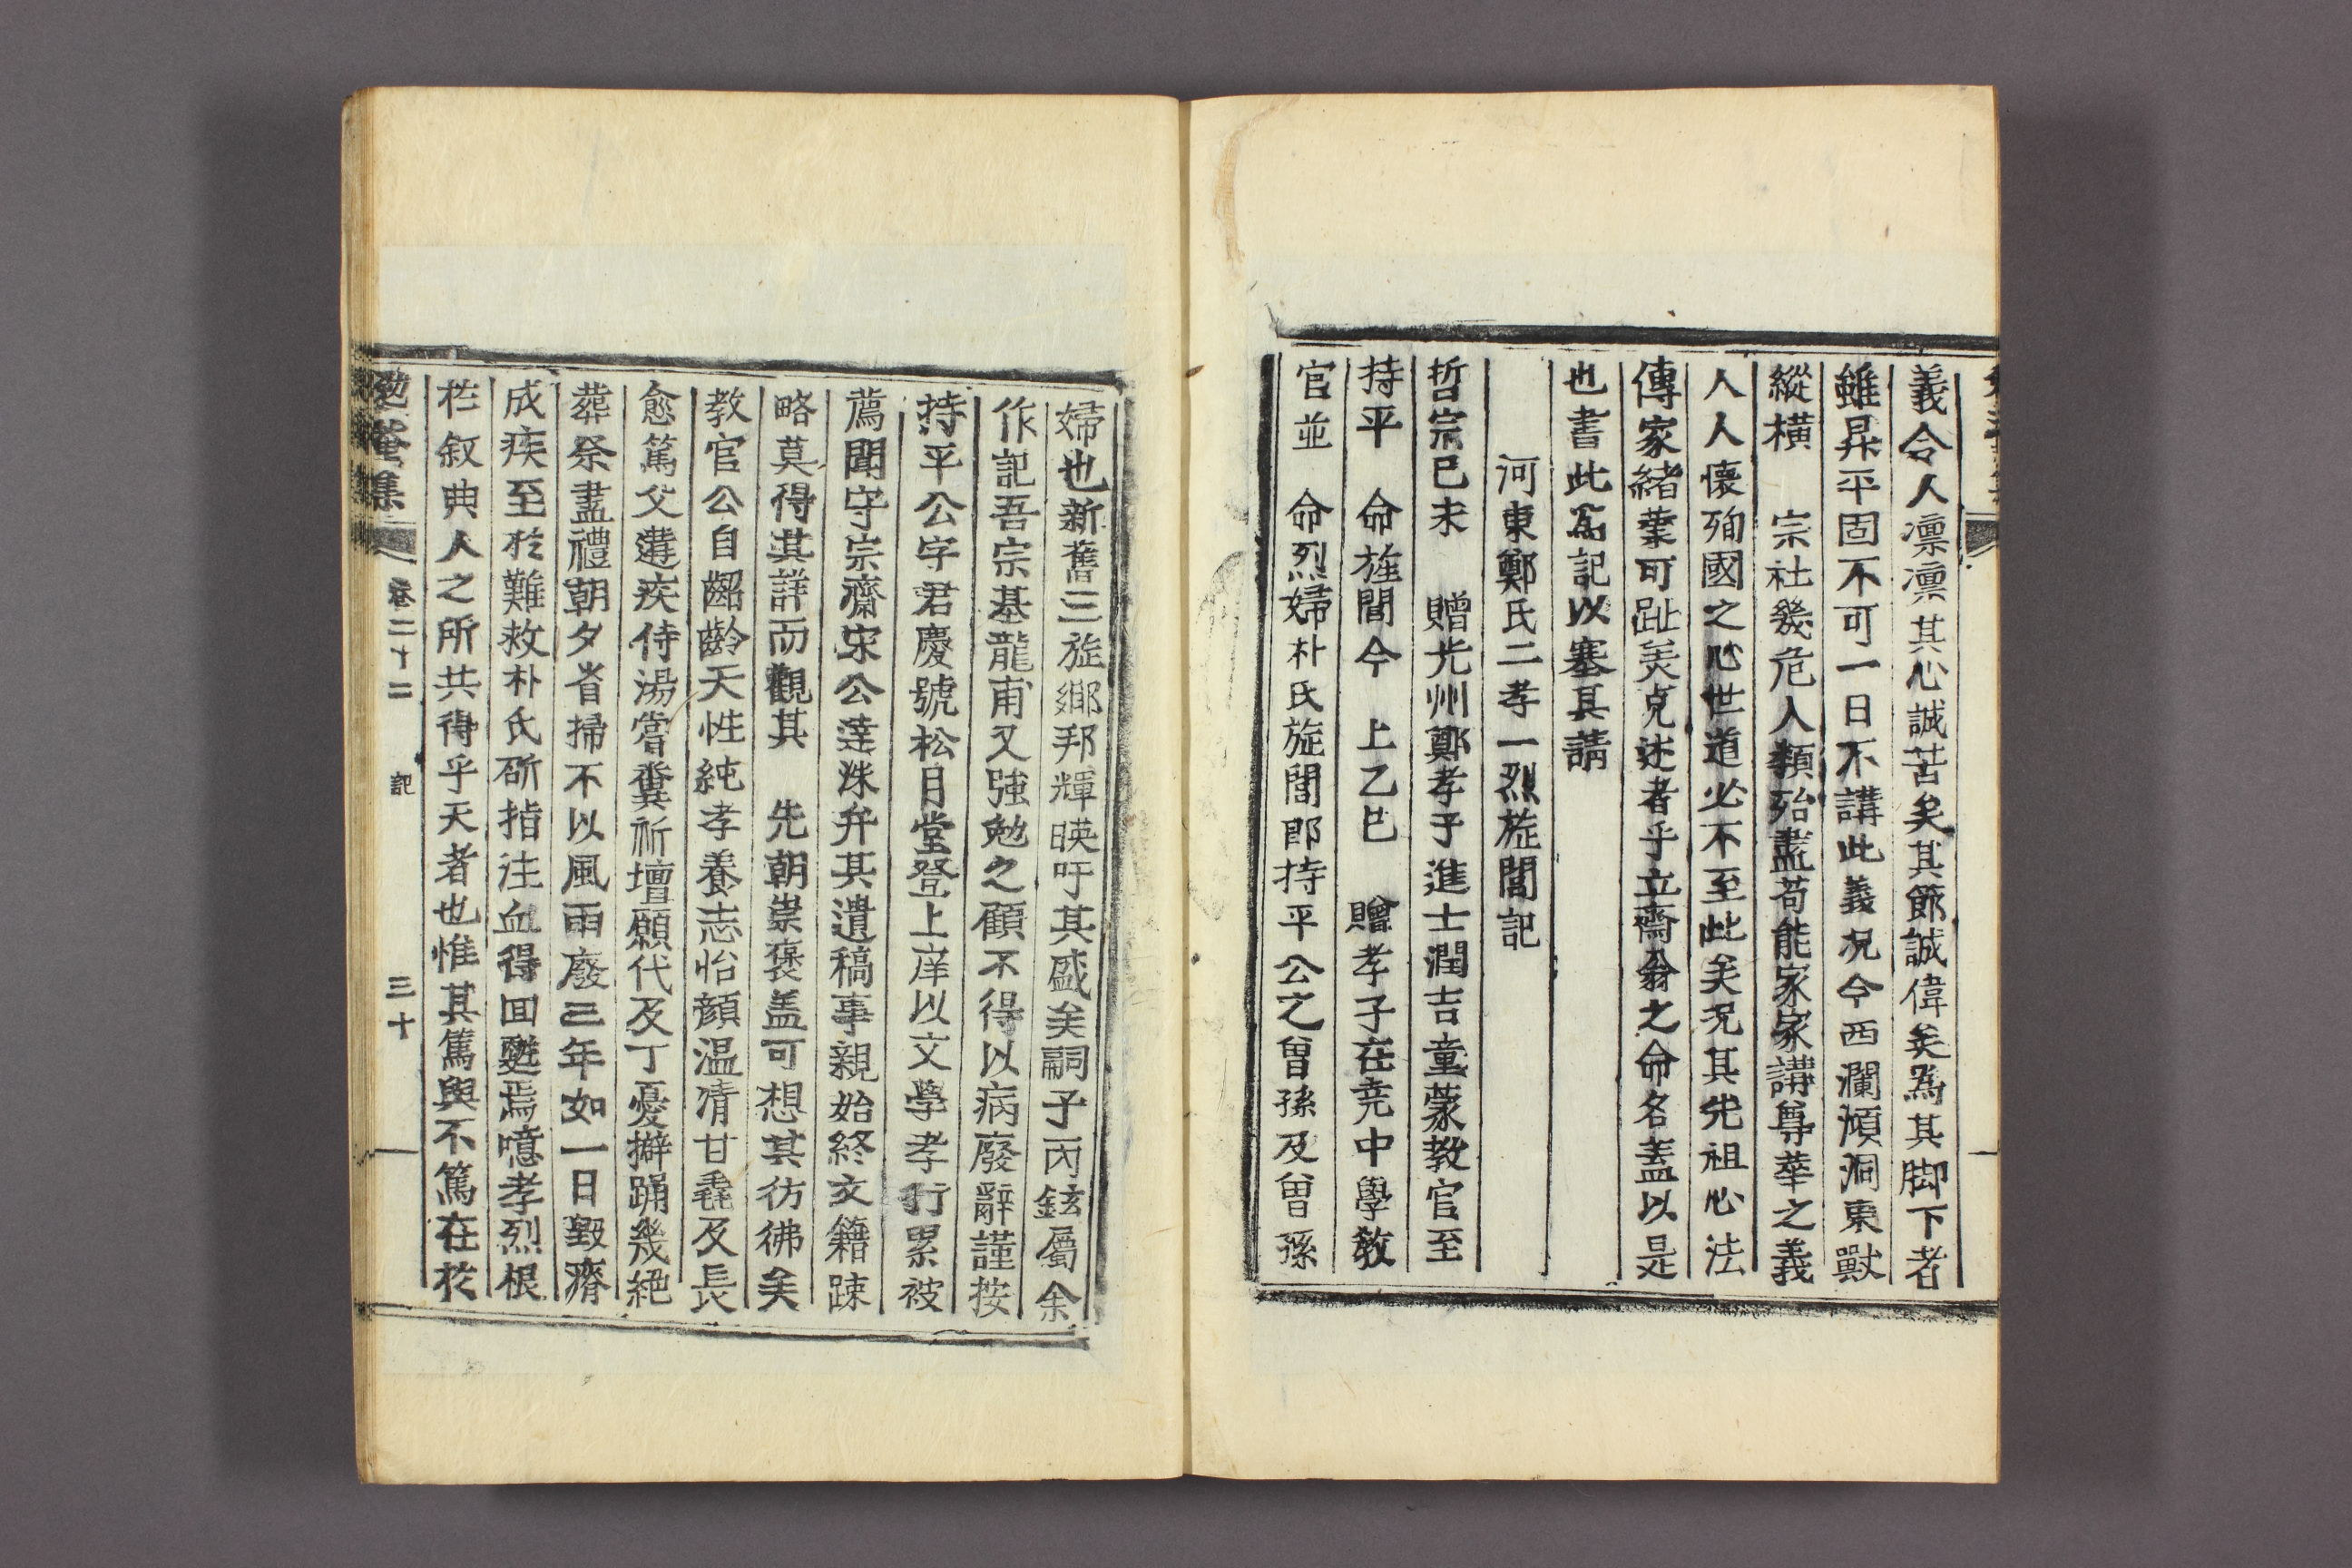 義令人凛凛其心誠苦矣其節誠偉矣爲其脚下者
雖昇平固不可一日不講此義况今西瀾澒洞東獸
縱橫 宗社幾危人類殆盡苟能家家講尊華之義
人人懷殉國之心世道必不至此矣况其先祖心法
傳家緖業可趾美克述者乎立齋翁之命名盖以是
也書此爲記以塞其請
河東鄭氏二孝一烈旌閭記
哲宗己未 贈光州鄭孝子進士潤吉童蒙敎官至
持平 命旌閭今 上乙巳 贈孝子在堯中學敎
官並 命烈婦朴氏旌閭卽持平公之曾孫及曾孫
婦也新舊三旌鄕邦輝暎吁其盛矣嗣子丙鉉屬余
作記吾宗基龍甫又強勉之顧不得以病廢辭謹按
持平公字君慶號松月堂登上庠以文學孝行累被
薦聞守宗齋宋公達洙弁其遺稿事親始終文籍踈
略莫得其詳而觀其 先朝崇褒盖可想其彷彿矣
教官公自齠齡天性純孝養志怡顔温凊甘毳及長
愈篤父遘疾侍湯嘗糞祈壇願代及丁憂擗踊幾絶
葬祭盡禮朝夕省掃不以風雨廢三年如一日毀瘠
成疾至於難救朴氏斫指注血得回甦焉噫孝烈根
於叙典人之所共得乎天者也惟其篤與不篤在於
勉菴集 卷二十二 記 三十